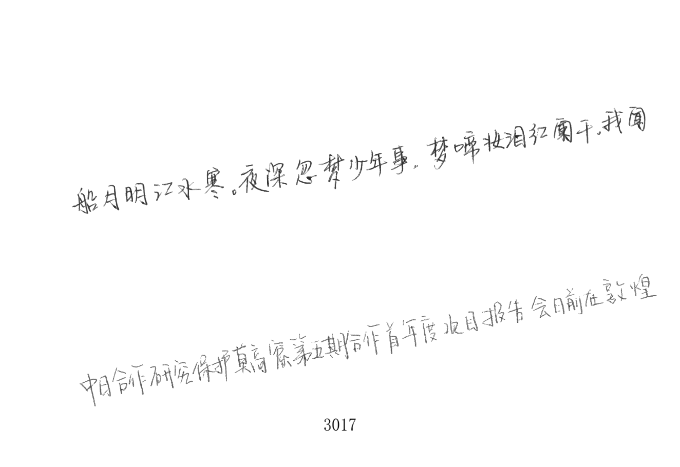 船月明江水寒。夜深忽梦少年事,梦啼妆泪红阑干。我闻
中日合作研究保护莫高窟第五期合作首年度次目报告会日前在敦煌
3017